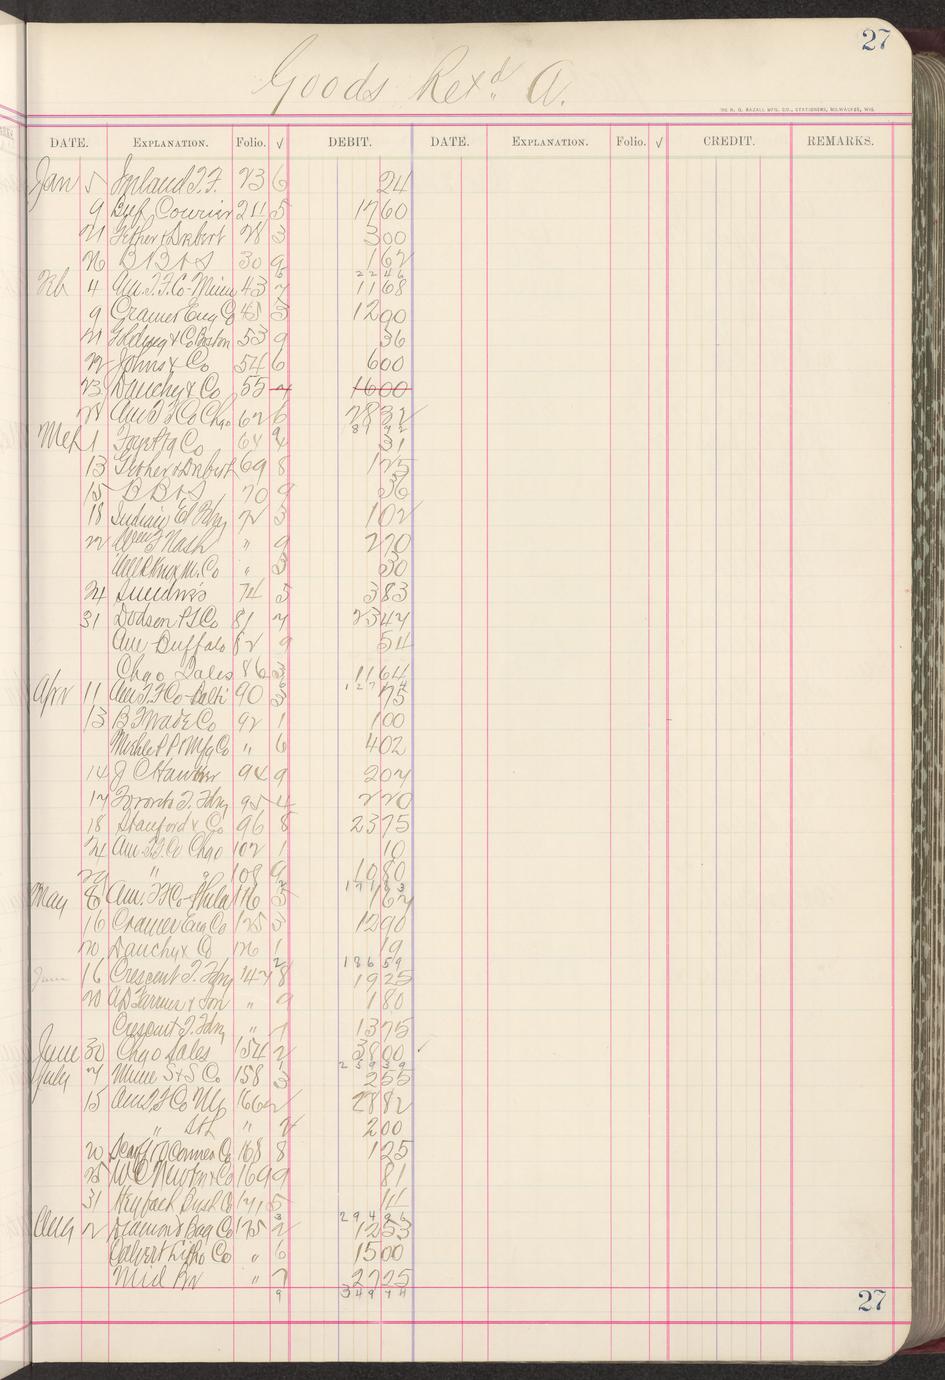 27
Goods Rexd. A.
THE H. G. RAZALL MFG. CO., STATIONERS, MILWAUKEE, WIS.
DATE. EXPLANATION. Folio. √ DEBIT. DATE. EXPLANATION. Folio. √ CREDIT. REMARKS.
Jan 5 Inland T.F. 23 6 24
9 Buf Courier 211 5 1760
21 28 3 300
26 B B & S 30 9 162
6 2246
Feb 4 Am. T.F. Co - Minn 43 7 1168
9 Cramer Eng Co 45 3 1200
21 Golding & Co Boston 53 9 36
22 Johns & Co 54 6 600
23 Dauchy & Co 55 7 1600
28 Am T F Co Chgo 62 6 2832
9 8942
Mch 1 Co 64 4 31
13 69 8 125
15 B B & S 70 9 36
18 Indian El Fdry 72 3 102
22 Wm F Nash " 9 270
Knox M. Co " 3 30
24 74 5 383
31 Dodson P S Co 81 7 2347
Am Buffalo 82 9 54
Chgo Sales 86 3 1164
6
Apr 11 Am T.F Co - Balti 90 3 75
13 B F Wade Co 92 1 100
P Pr Mfg Co " 6 402
14 J C 94 9 207
17 Toronto T. Fdry 95 4 220
18 Stanford & Co 96 8 2375
24 Am. T.F. Co Chgo 102 1 10
29 " " 108 9 1080
2 17183
May 8 Am. T F Co - Phila 116 5 167
16 Cramer Eng Co 125 3 1290
20 Dauchy & Co 126 1 19
2 18659
June 16 Crescent T. Fdry 147 8 1925
20 A D Farmer & Son " 9 180
Crescent T. Fdry " 7 1375
June 30 Chgo Sales 154 2 3800 ✓
1 25939
July 7 Minne S & S Co 158 3 255
15 Am T.F Co 166 2 2882
" " 2 200
20 Scarff & O'Connor Co 168 8 125
25 W C Newton & Co 169 9 81
31 Bush Co 171 5 14
3 29496
Aug 2 Diamond Bag Co 175 2 1253
Calvert Litho Co " 6 1500
Mid " 7 2725
9 34974
27